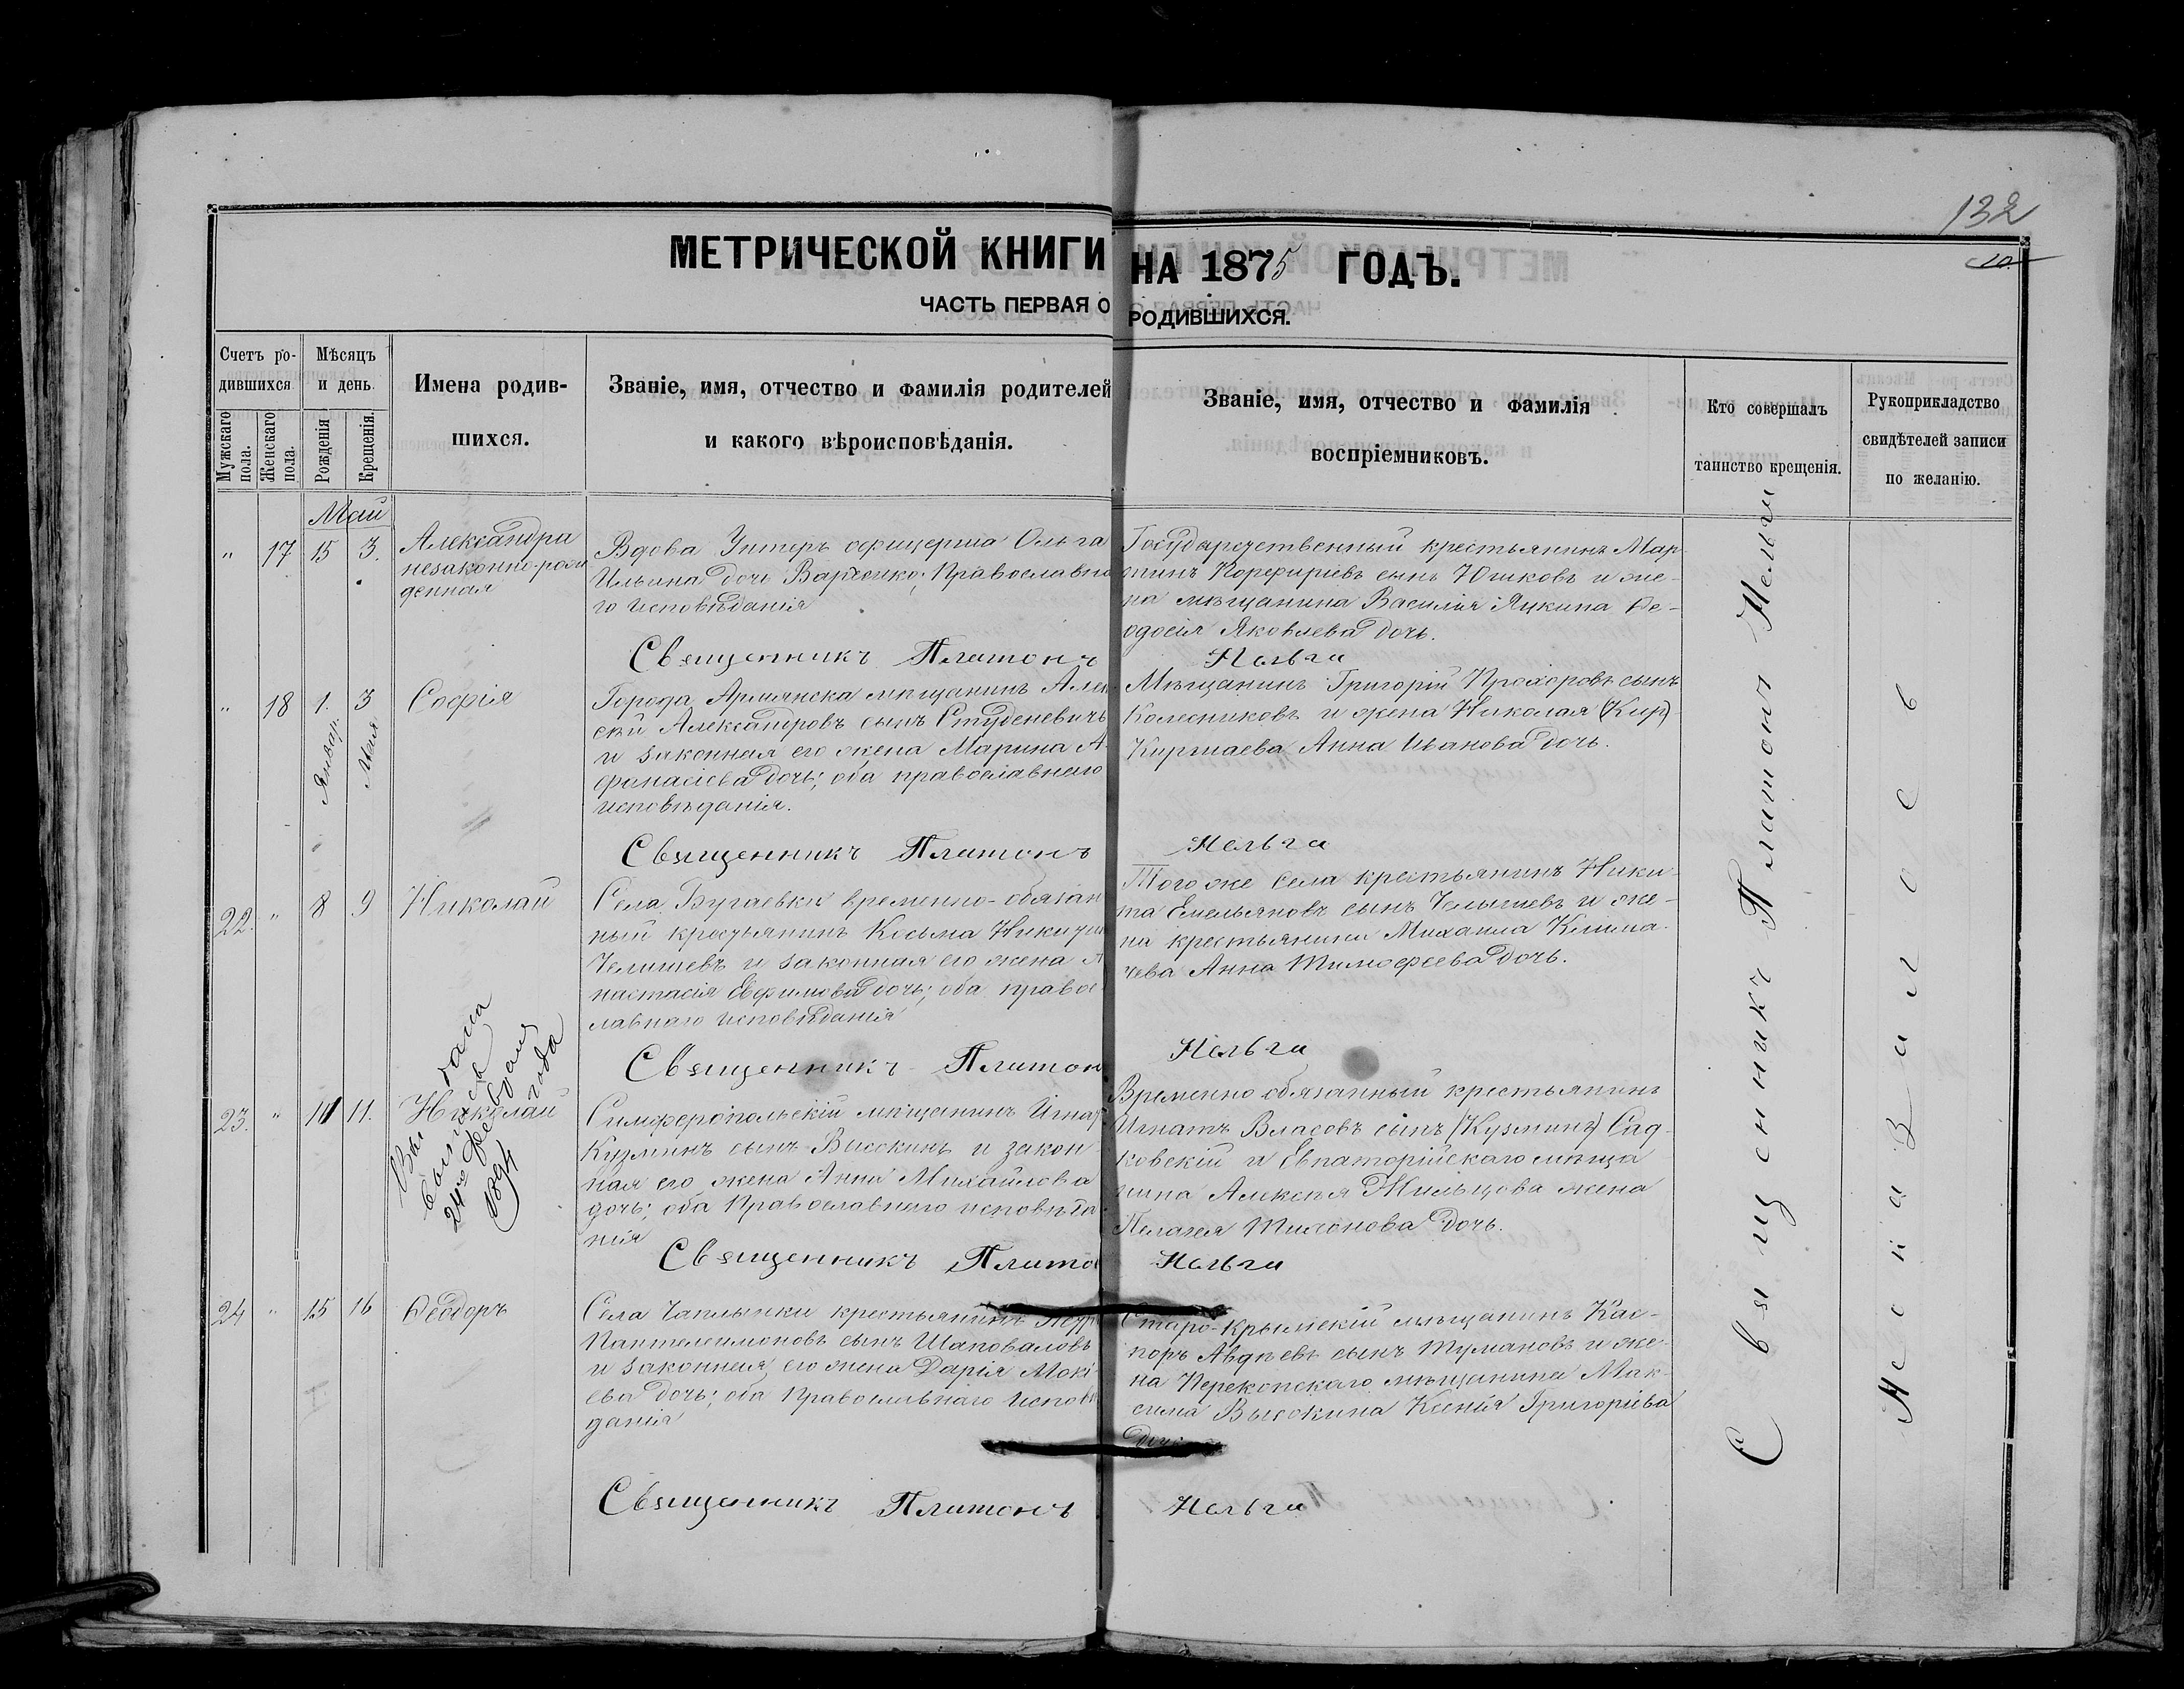 132
10.
МЕТРИЧЕСКОЙ КНИГИ НА 1875 ГОДЪ.
ЧАСТЬ ПЕРВАЯ О РОДИВШИХСЯ.
Счетъ ро-
дившихся
Мужскаго пола.
Женскаго пола.
Мѣсяцъ
и день.
Рожденія
Крещенія.
Имена родив-
шихся.
Званіе, имя, отчество и фамилія родителей
и какого вѣроисповѣданія.
Званіе, имя, отчество и фамилія
воспріемниковъ.
Кто совершалъ
таинство крещенія.
Рукоприкладство
свидѣтелей записи
по желанію.
Май
" 17 15 3.
Александра
незаконно-рож
денная
Вдова Унтеръ офицерша Ольга
Ильина дочь ; Православна
го исповѣданія
Государственный крестьянинъ Мар
тинъ Порфиріевъ сынъ Юшковъ и же-
на мѣщанина Василія Яцкина Ѳе-
одосія Яковлева дочь.
Священникъ Платонъ Нельга
" 18 1. 3
Январ.
Мая
Софія
Города Армянска мѣщанинъ Алек
сѣй Александровъ сынъ Студеневичъ
и законная его жена Марина А-
фанасіева дочь; оба православнаго
исповѣданія.
Мѣщанинъ Григорій Прохоровъ сынъ
Колесниковъ и жена Николая (Кир)
Киршаева Анна Иванова дочь.
Священникъ Платонъ Нельга
22. " 8 9
Николай
Села Бугаевки временно-обязан
ный крестьянинъ Косьма Никитин
Челышевъ и законная его жена А
настасія Евфимова дочь; оба правос
лавнаго исповѣданія
Того же села крестьянинъ Ники-
та Емельяновъ сынъ Челышевъ и же-
на крестьянина Михаила
чева Анна Тимофеева дочь.
Священникъ Платон Нельга
23. " 11 11.
Николай
Выдана
24го февраля
1894 года
Симферопольскій мѣщанинъ Игнат
Кузминъ сынъ Высокинъ и закон-
ная его жена Анна Михайлова
дочь; оба Православнаго исповѣда
нія
Временно обязанный крестьянинъ
Игнатъ Власовъ сынъ (Кузминъ) Сад-
ковскій и Евпаторійскаго мѣща
нина Алексѣя Жильцова жена
Пелагея Тихонова дочь.
Священникъ Плато Нельга
24 " 15 16
Ѳеодоръ
Села Чаплынки крестьянинъ
Пантелеимоновъ сынъ Шаповаловъ
и законная его жена Дарія Мокі
ева дочь; оба Православнаго исповѣ
данія
Старо-Крымскій мѣщанинъ Кас-
поръ Авдѣевъ сынъ Тумановъ и же-
на Перекопскаго мѣщанина Мак-
сима Высокина Ксенія Григоріева
дочь
Священникъ Платонъ Нельга
Священникъ Платонъ Нельга